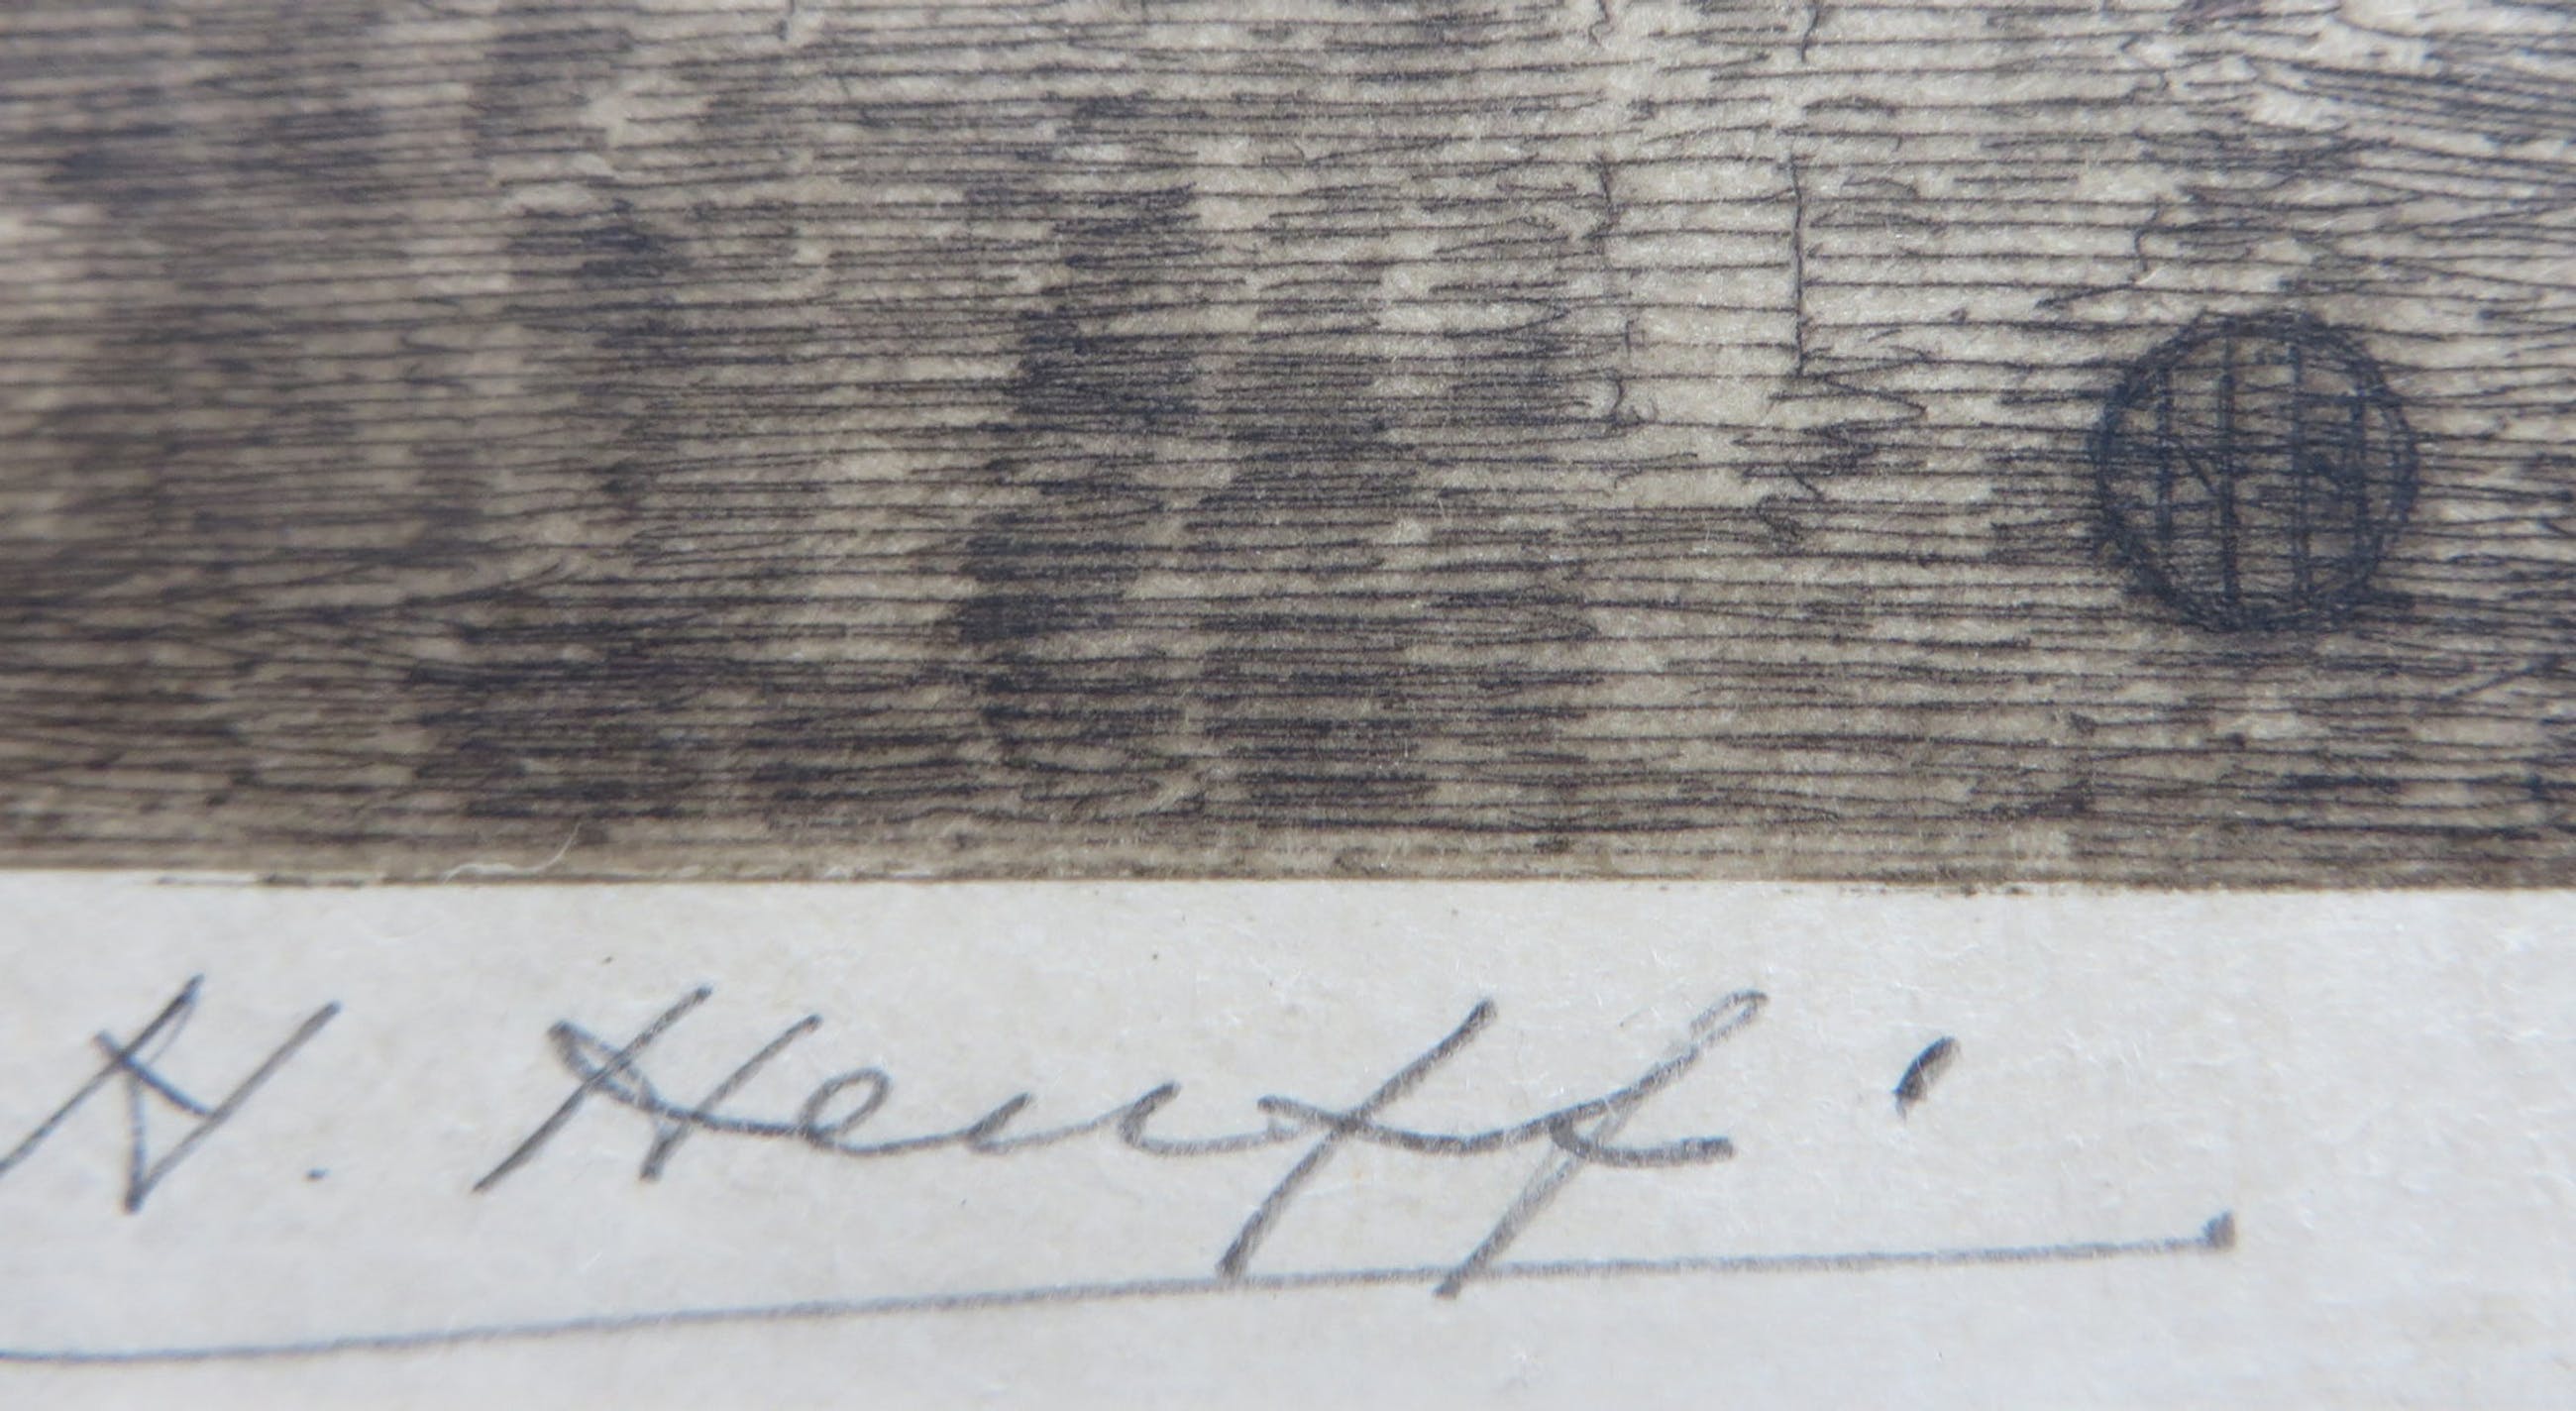 H. Heuffi